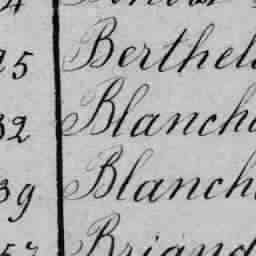 25 Berthel
32 Blanch
39 Blanch
Briand